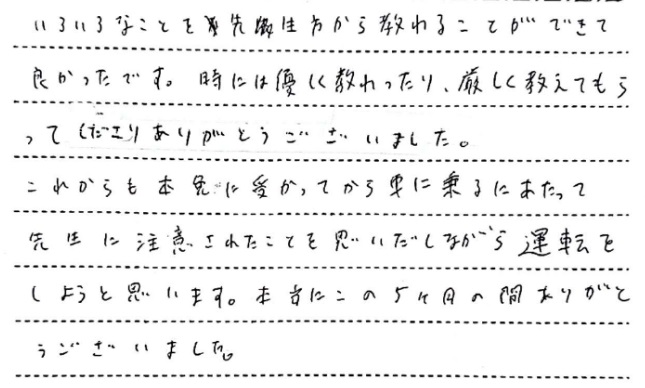 いろいろなことを先生方から教われることができて
良かったです。時には優しく教わったり、厳しく教えてもら
って くださりありがとうございました。
これからも本免に受かってから車に乗るにあたって
先生に注意されたことを思いだしながら運転を
しようと思います。本当にこの5ヶ月の間ありがと
うございました。